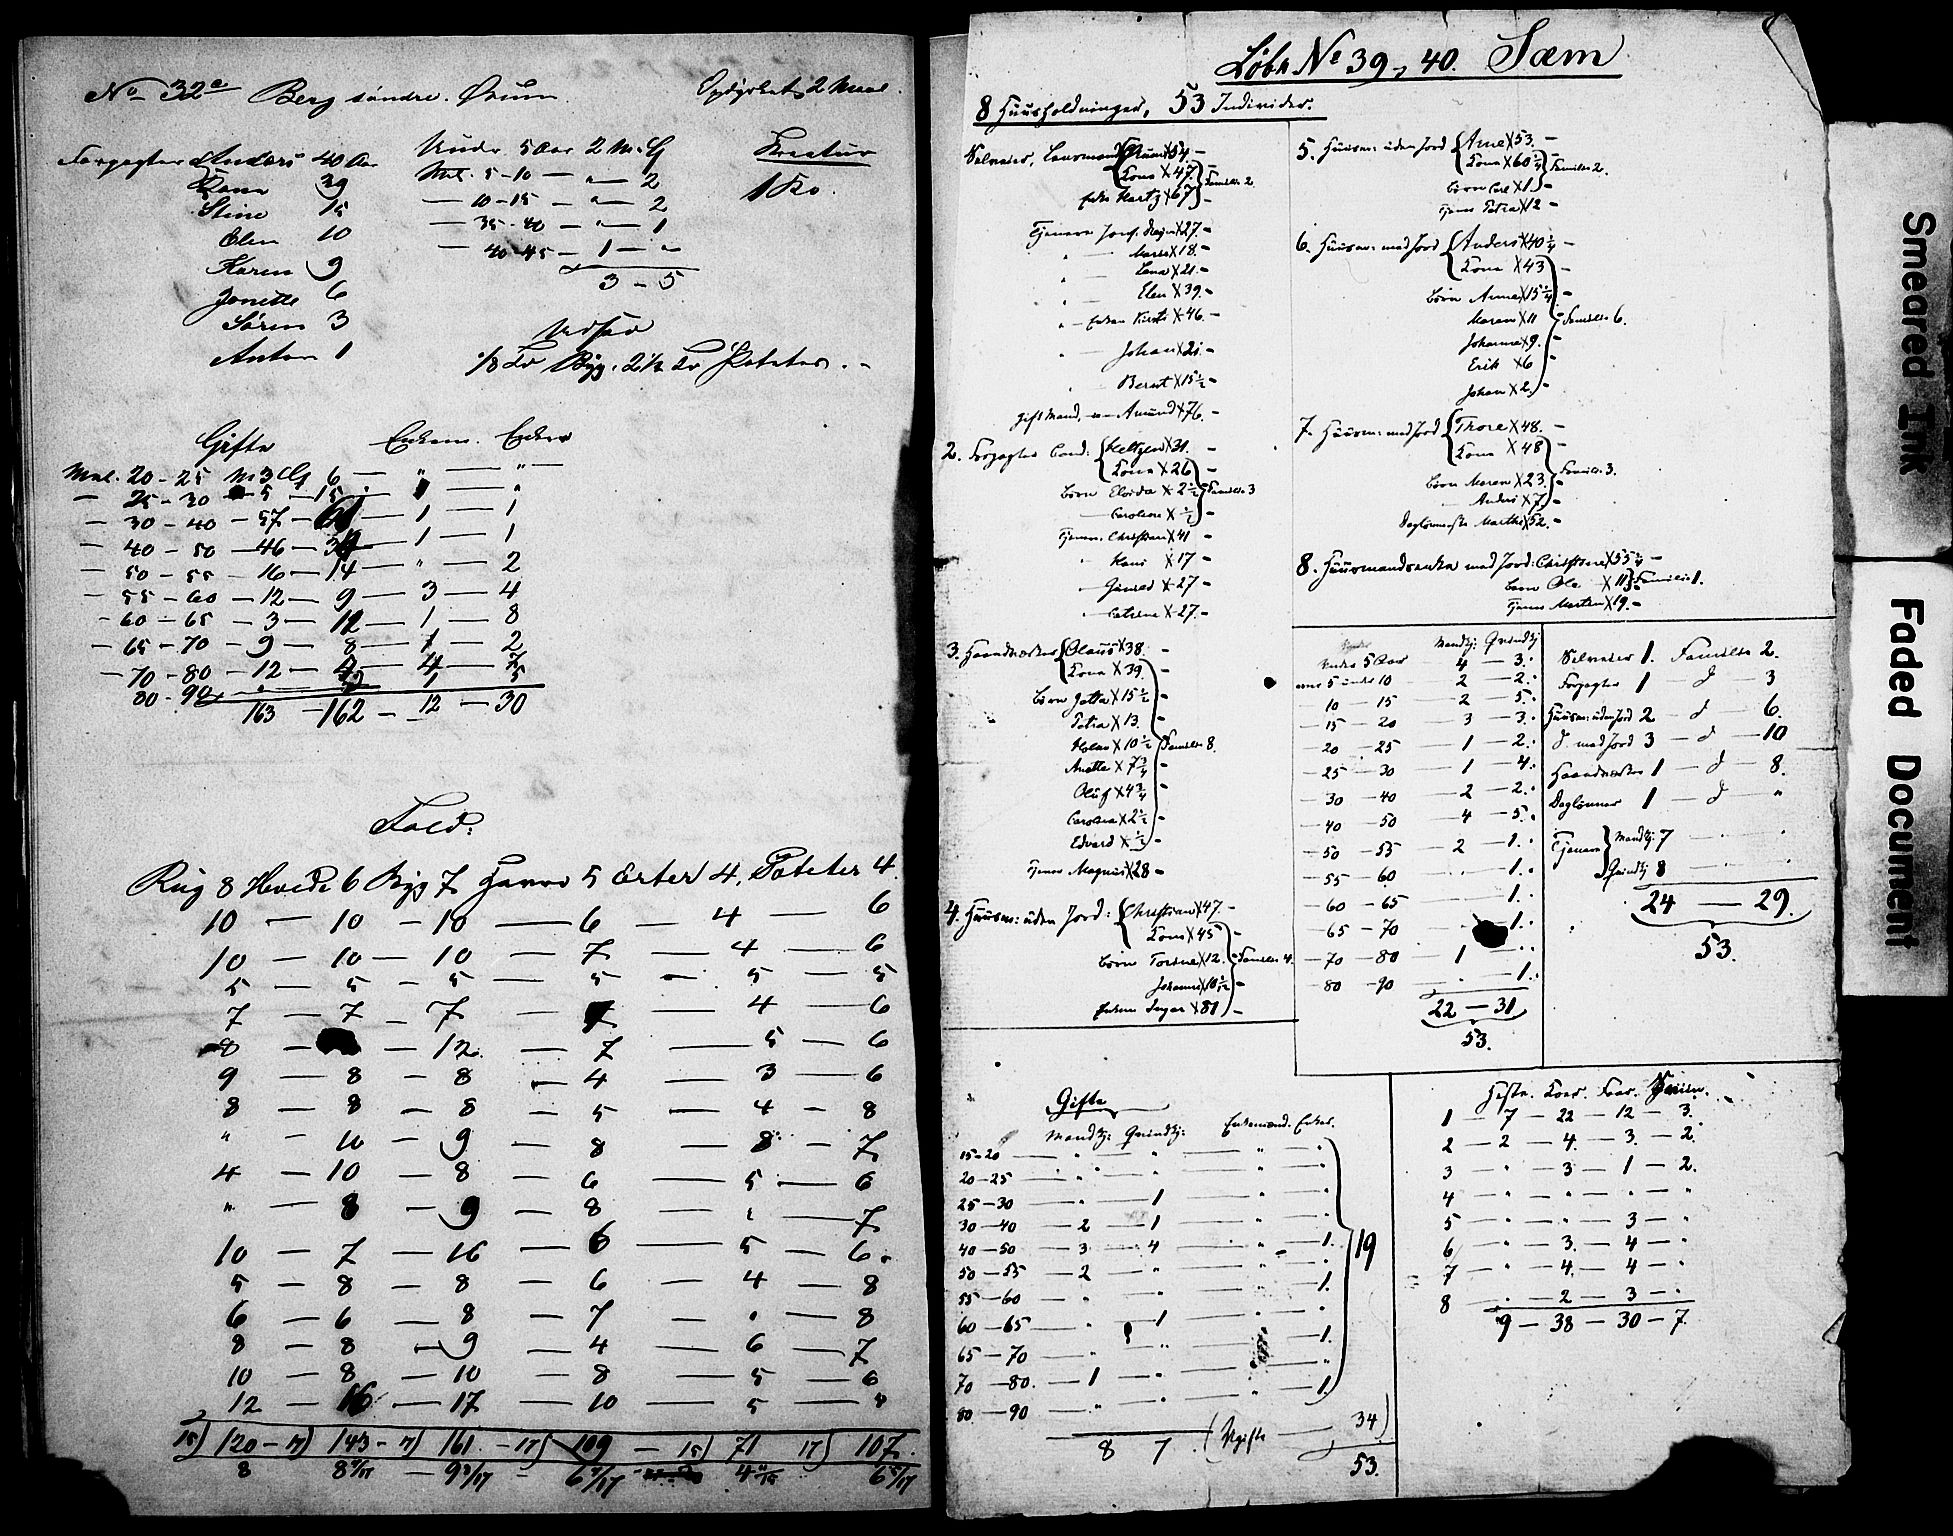 No 32e Berg søndre. Ørum. Opdyrket 2 Maal.
Forpagter Anders 40 Aar
Kona 39
Stine 15
Elen 10
Karen 9
Jonette 6
Søren 3
Anton 1
Under 5 Aar 2 M. 
Mel. 5-10 — " — 2
— 10-15 — " — 2
— 35-40 — " — 1
— 40-45 — 1 — "
3 - 5
Kreatur
1 Ko.
Udsæd
1/8 Tø Byg. 2 1/2 Tø Poteter. -
Gifte Enkem. Enker
Mel. 20-25 M 3 Q 6 — " — "
— 25-30 — 5 — 15
— 30-40 — 57 — — 1 — 1
— 40-50 — 46 — — 1 — 1
— 50-55 — 16 — 14 — " — 2
— 55-60 — 12 — 9 — 3 — 4
— 60-65 — 3 — 12 — 1 — 8
— 65-70 — 9 — 8 — 1 — 2
— 70-80 — 12 — 4 7
80-90 1 5
163 — 162 — 12 — 30
Fold:
Rug 8 Hvede 6 Byg 7 Havre 5 Erter 4, Poteter 4.
10 — 10 — 10 — 6 — 4 — 6
10 — 10 — 10 — 7 — 4 — 6
5 — 5 — 5 — 5 — 5 — 5
7 — 7 — 7 — 4 — 6
8 — — 12 — 7 — 5 — 6
9 — 8 — 8 — 4 — 3 — 6
8 — 8 — 8 — 5 — 4 — 8
" — 10 — 9 — 8 — 8 — 7
4 — 10 — 8 — 6 — 5 — 6
" — 8 — 9 — 8 — — 7
10 — 7 — 16 — 6 — 5 — 6
5 — 8 — 8 — 6 — 4 — 8
6 — 6 — 8 — 7 — " — 8
8 — 8 — 9 — 4 — 6 — 7
10 — 8 — 10 — 8 — 5 — 6
12 — 16 — 17 — 10 — 5 — "
15) 120 - 17) 143 - 17) 161 - 17) 109 - 15) 71 17) 107
8 8 7/17 — 9 8/17 — 6 7/17 4 11/15 6 5/17
Løbe No 39, 40. Sæm
8 Huusholdninger, 53 Individer.
Selveier, Lensmand X 54 -
Kona X 47
Enke X 67 - Familie 2
Tjenere X 27. -
Maren X 18. -
Lena X 21. -
Elen X 39. -
Enken Kirsti X 46. -
Johan X 21. -
Bernt X 15 1/2 -
gift Mand, Amund X 76. -
2. Forpagter Cand: Heltzen X 31. -
Kona X 26
Børn Elvida X 2 1/2 Familie 3
Caroline X 1/2
Tjener. Christian X 41 -
Kari X 17 -
X 27 -
Catrine X 27. -
3. Haandverker Olaus X 38. -
Kona X 39
Børn Jetta X 15 1/2 -
Petra X 13. -
X 10 1/2 Familie 8.
Anette X 7 3/4 -
Oluf X 4 3/4 -
Carolina X 2 1/2
Edvard X 1/2 -
Tjener Magnus X 28 -
4. Huusm: uden Jord: Christian X 47. -
Kona X 45 -
Børn X 12. - Familie 4.
Johannes X 10
Enken Inger X 81 -
5. Huusm: uden Jord Arne X 53. -
Kona X 60 1/4 Familie 2.
Børn Carl X 1. -
Tjener Petra X 12 -
6. Huusm: med Jord Anders X 40 1/4 -
Kona X 43 -
Børn Anne X 15 3/4 -
Maren X 11 Familie 6.
Johanne X 9. -
Erik X 6 -
Johan X 2. -
7. Huusm: med Jord Thore X 48. -
Kona X 48 -
Børn Maren X 23. Familie 3.
Anders X 7. -
Marthe X 52. -
8. Huusmandsenke med Jord: Christine X 55 3/4 -
Børn Ole X 11 Familie 1.
Tjener Martin X 19. -
Mandkj: Qvindkj
Under 5 Aar 4 — 3.
over 5 under 10 2 — 2.
— 10 — 15 — 2 — 5.
— 15 — 20 — 3 — 3.
— 20 — 25 — 1 — 2.
— 25 — 30 — 1 — 4.
— 30 — 40 — 2 — 2.
— 40 — 50 — 4 — 5.
— 50 — 55 — 2 — 1.
— 55 — 60 — . — 1.
— 60 — 65 — . — 1.
— 65 — 70 — . — 1.
— 70 — 80 — 1 — .
— 80 — 90 — . — 1.
22 — 31
53.
Selveier 1. Familie 2.
Forpagter 1 — d — 3
Huusm: uden Jord 2 — d — 6.
d med Jord 3 — d — 10
Haandverker 1 — d — 8.
Daglønner 1 — d — "
Tjenere Mandkj: 7
Qvindkj 8
24 — 29.
53.
Gifte
Mandkj: Qvindkj: Enkemænd. Enker.
15-20 — " — " — " — "
20-25 — " — " — " — "
25-30 — " — 1 — " — "
30-40 — 2 — 1 — " — "
40-50 — 3 — 4 — " — 1.
50-55 — 2 — " — " — "
55-60 — " — " — " — 1.
60-65 — " — 1 — " — "
65-70 — " — " — 1.
70-80. — 1 — " — " — "
80-90 — " — " — " — 1.
19
8 7 (Ugifte — 34)
53.
Heste. Koer. Faar. Sviin.
1 — 7 — 22 — 12 — 3.
2 — 2 — 4. — 3. — 2.
3 — " — 3 — 1 — 2.
4 — " — " — " — "
5 — " — " — 3 — "
6 — " — 3. — 4 — "
7 — " — 4. — 4 — "
8 — " — 2 — 3 — "
9 — 38 — 30 — 7
Smeared Ink
Faded Document